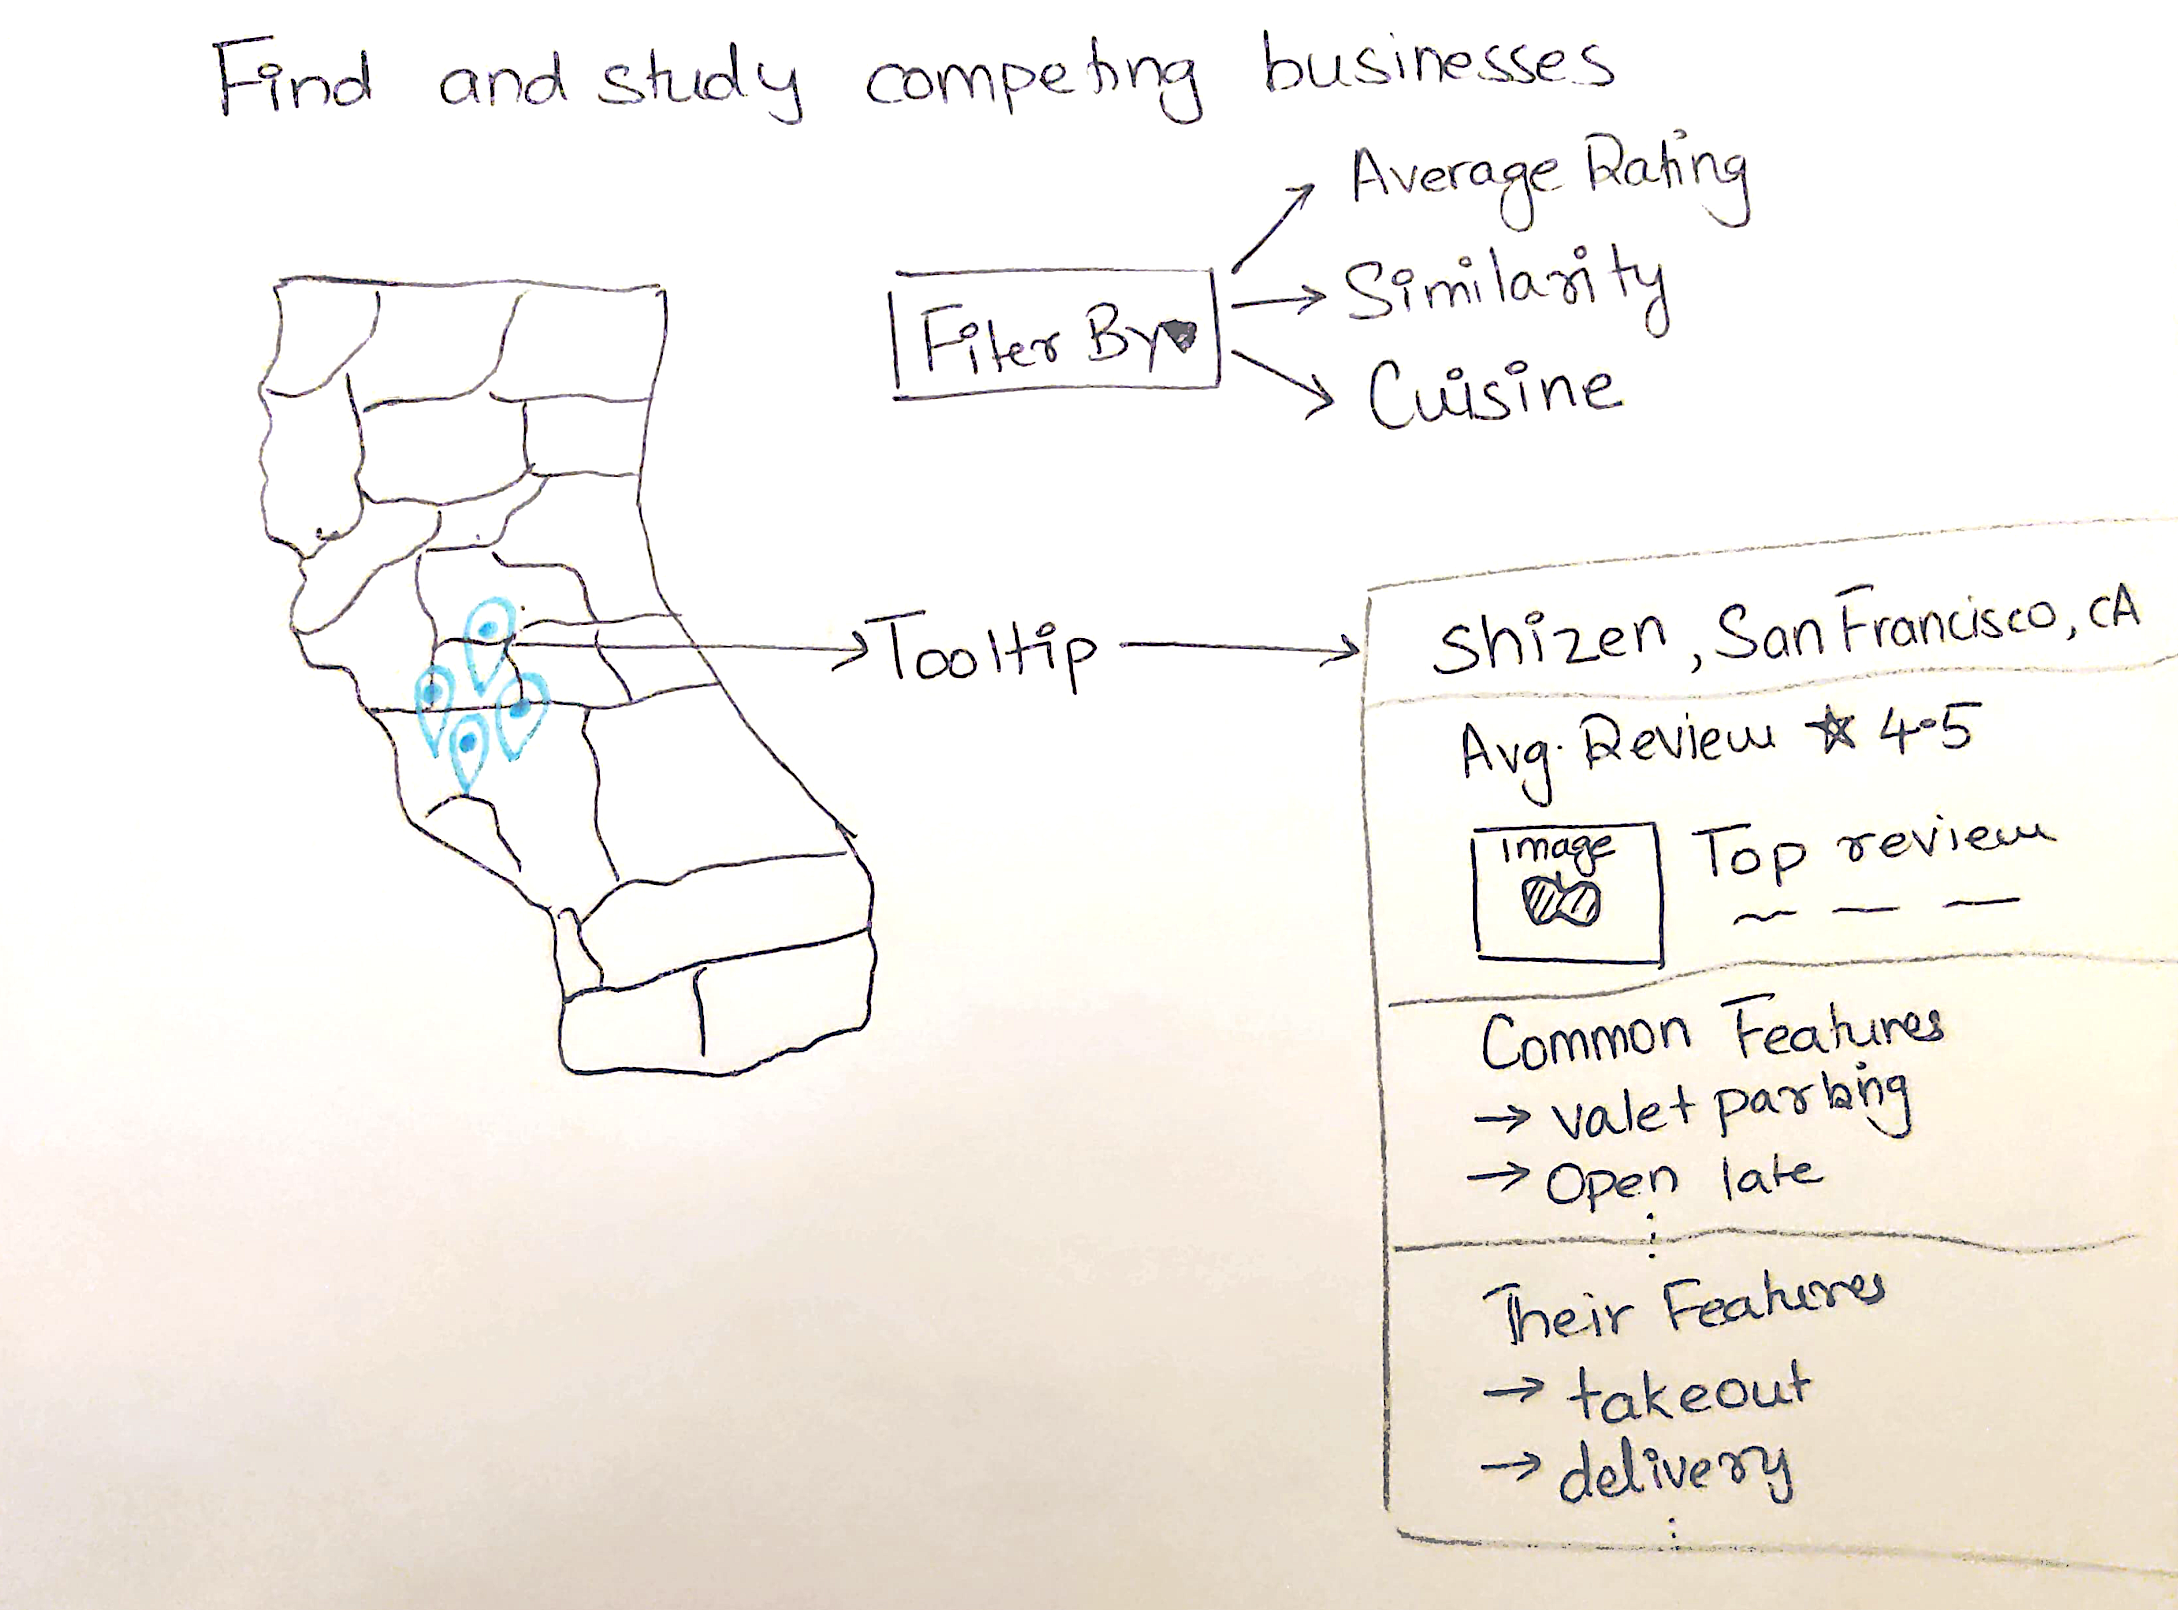 Find and study competing businesses
Average Rating
Similarity
Filter By
Cuisine
Tooltip
Shizen, San Francisco, CA
Avg. Review ☆ 4.5
image
Top review
Common Features
→ valet parking
→ Open late
Their Features
→ takeout
→ delivery